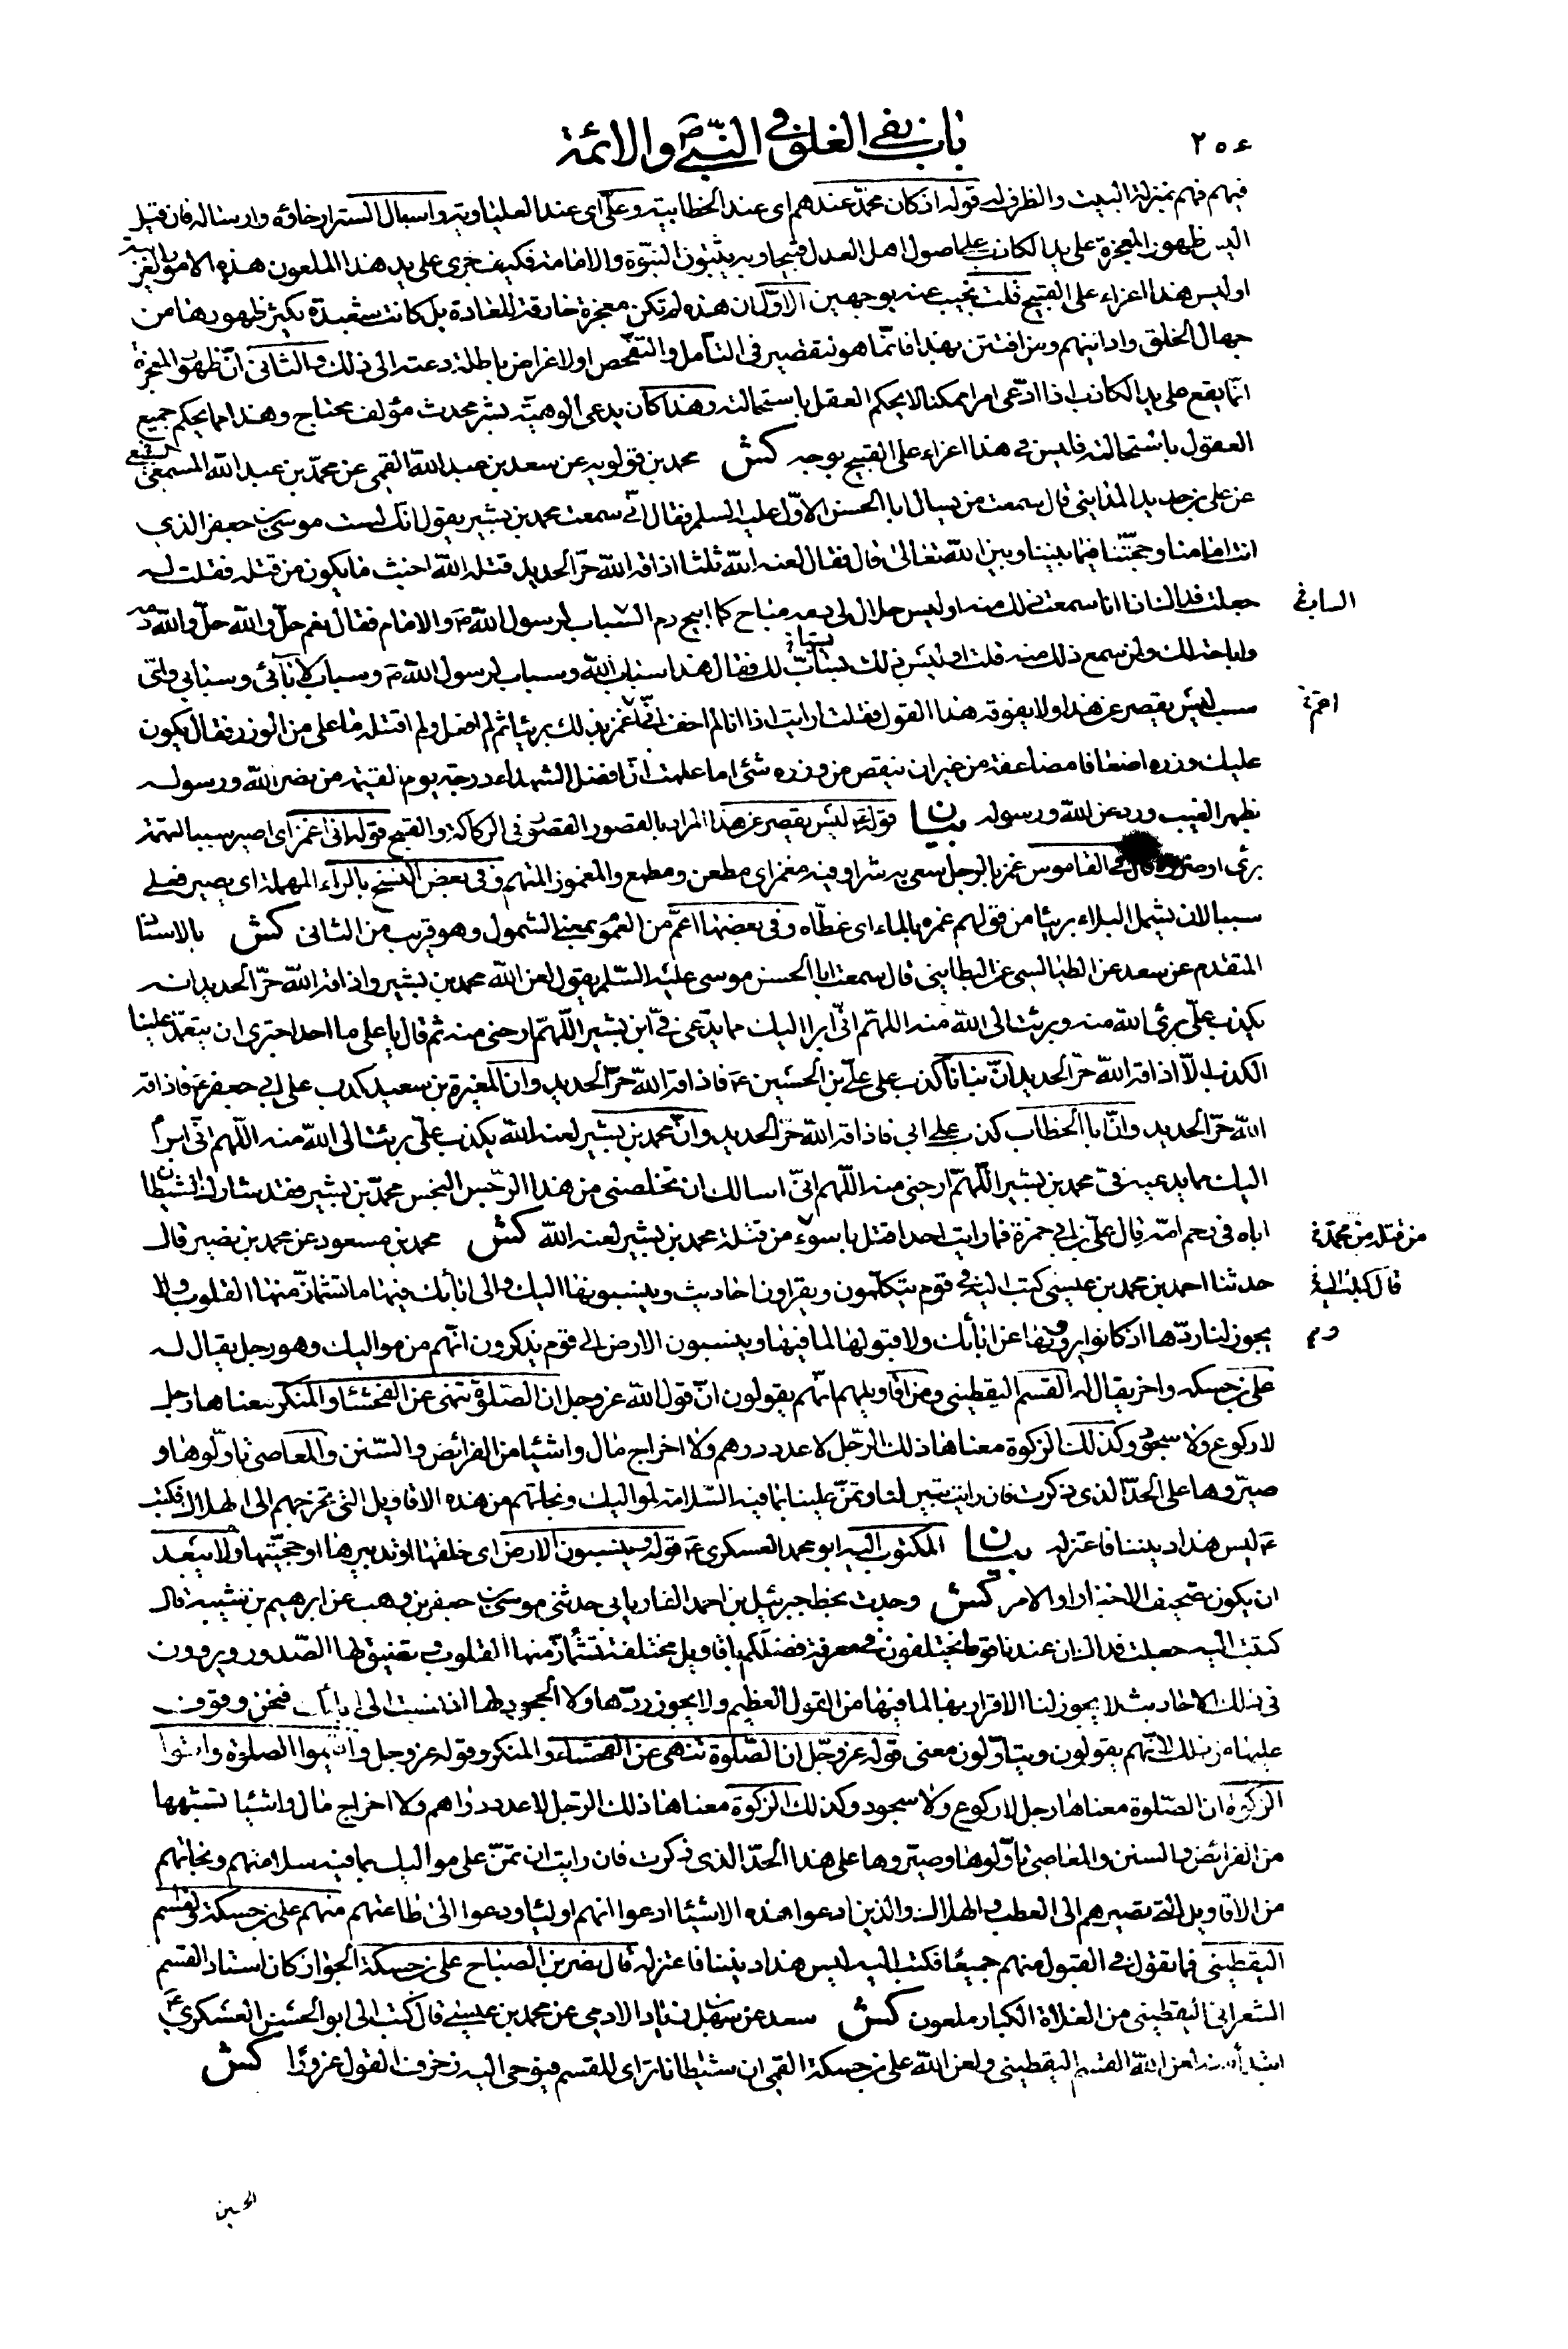 ٢٥٤
باب نفي الغلو في النبي ص والائمة
فيهم فهم بمنزلة البيت والظرف له قوله اذ كان محمد عندهم اى عند الخطابية وعلى اى عند العلياوية واسبال الستر ارخاؤه وارساله فان قيل
اليس ظهور المعجزة على يد الكاذب على اصول اهل العدل قبيحا وبه يثبتون النبوة والامامة فكيف جرى على يد هذا الملعون هذه الامور الغريبة
اوليس هذا اغراء على القبيح قلت نجيب عنه بوجهين الاول ان هذه لم تكن معجزة خارقة للعادة بل كانت شعبدة يكثر ظهورها من
جهال الخلق وادانيهم ومن افتتن بهذا فانما هو لتقصير في التأمل والتفحص او لاغراض باطلة دعته الى ذلك والثاني ان ظهور المعجزة
انما يقع على يد الكاذب اذا ادعى امرا ممكنا لا يحكم العقل باستحالته وهذا كان يدعى الوهية بشر محدث مؤلف محتاج وهذا مما يحكم جميع
العقول باستحالته فليس في هذا اغراء على القبيح بوجه كش محمد بن قولويه عن سعد بن عبد الله القمى عن محمد بن عبد الله المسمعى
عن على بن حديد المدايني قال سمعت من يسال ابا الحسن الاول عليه السلم فقال انى سمعت محمد بن بشير يقول انك لست موسى بن جعفر الذي
انت امامنا وحجتنا فيما بيننا وبين الله تعالى قال فقال لعنه الله ثلثا اذاقه الله حر الحديد قتله الله اخبث ما يكون من قتلة فقلت له
جعلت فداك اذا انا سمعت ذلك منه اوليس حلال لى دمه مباح كما ابيح دم السباب لرسول الله ص والامام فقال نعم حل والله حل والله دمه
السابغ
واباحه لك ولمن سمع ذلك منه قلت اوليس ذلك بساب لك فقال هذا سباب الله وسباب لرسول الله ص وسباب لابائي وسبابي واى
سب ليس يقصر عن هذا ولا يفوقه هذا القول فقلت ارايت اذا انا لم اخف انى اغمز بذلك بريئا ثم لم افعل ولم اقتله ما على من الوزر فقال يكون
اعم
عليك وزره اضعافا مضاعفة من غير ان ينقص من وزره شئ اما علمت ان افضل الشهداء درجة يوم القيمة من نصر الله ورسوله
بظهر الغيب ورد عن الله ورسوله بيان قوله ليس يقصر عن هذا المراد بالقصور القصور في الركاكة والقبح قوله انى اغمز اى اصير سببا لتهمة
برئ او قال في القاموس غمز بالرجل سعى به شرا وفيه مغمز اى مطعن ومطمع والمغموز المتهم وفي بعض النسخ بالراء المهملة اى يصير فعلى
سببا لان يشمل البلاء بريئا من قولهم غمره بالماء اى غطاه وفي بعضها اعم من العموم بمعنى الشمول وهو قريب من الثانى كش بالاسناد
المتقدم عن سعد عن الطيالسي عن البطايني قال سمعت ابا الحسن موسى عليه السلم يقول لعن الله محمد بن بشير واذاقه الله حر الحديد انه
يكذب على برئ الله منه وبرئت الى الله منه اللهم انى ابرأ اليك مما يدعى في ابن بشير اللهم ارحنى منه ثم قال يا على ما احد اجترى ان يتعمد علينا
الكذب الا اذاقه الله حر الحديد ان بنانا كذب على على بن الحسين ع فاذاقه الله حر الحديد وان المغيرة بن سعيد كذب على ابي جعفر ع فاذاقه
الله حر الحديد وان ابا الخطاب كذب على ابي فاذاقه الله حر الحديد وان محمد بن بشير لعنه الله يكذب على برئت الى الله منه اللهم انى ابرأ
اليك مما يدعيه في محمد بن بشير اللهم ارحنى منه اللهم انى اسالك ان تخلصنى من هذا الرجس النجس محمد بن بشير فقد شارك الشيطان
اباه في رحم امه قال على بن ابي حمزة فما رايت احدا قتل باسوء من قتلة محمد بن بشير لعنه الله كش محمد بن مسعود عن محمد بن نصير قال
حدثنا احمد بن محمد بن عيسى كتب اليه في قوم يتكلمون ويقراون احاديث وينسبونها اليك والى ابائك فيها ما تشمأز منها القلوب ولا
يجوز لنا ردها اذ كانوا يروونها عن ابائك ولا قبولها لما فيها وينسبون الارض الى قوم يذكرون انهم من مواليك وهو رجل يقال له
على بن حسكه واخر يقال له القسم اليقطيني ومن اقاويلهم انهم يقولون ان قول الله عز وجل ان الصلوة تنهى عن الفحشاء والمنكر معناها رجل
لا ركوع ولا سجود وكذلك الزكوة معناها ذلك الرجل لا عدد درهم ولا اخراج مال واشياء من الفرائض والسنن والمعاصى تاولوها و
صيروها على الحد الذى ذكرت فان رايت تبين لنا وتمن علينا بما فيه السلامة لمواليك ونجاتهم من هذه الاقاويل التى تخرجهم الى الهلاك فكتب
ع ليس هذا ديننا فاعتزله بيان المكتوب اليه ابو محمد العسكري ع قوله وينسبون الارض اى خلقها او تدبيرها او حجيتها ولا يبعد
ان يكون تصحيف الاخبار او الامر كش وجدت بخط جبرئيل بن احمد الفاريابي حدثنى موسى بن جعفر بن وهب عن ابرهيم بن شيبة قال
كتبت اليه جعلت فداك ان عندنا قوما يختلفون في معرفة فضلكم باقاويل مختلفة تشمأز منها القلوب وتضيق لها الصدور ويروون
في ذلك الاحاديث لا يجوز لنا الاقرار بها لما فيها من القول العظيم ولا يجوز ردها ولا الجحود لها اذا نسبت الى ابائك فنحن وقوف
عليها من ذلك لانهم يقولون ويتاولون معنى قوله عز وجل ان الصلوة تنهى عن الفحشاء والمنكر وقوله عز وجل واقيموا الصلوة واتوا
الزكوة ان الصلوة معناها رجل لا ركوع ولا سجود وكذلك الزكوة معناها ذلك الرجل لا عدد دراهم ولا اخراج مال واشياء تشبهها
من الفرائض والسنن والمعاصى تاولوها وصيروها على هذا الحد الذى ذكرت فان رايت ان تمن على مواليك بما فيه سلامتهم ونجاتهم
من الاقاويل التى تصيرهم الى العطب والهلاك والذين ادعوا هذه الاشياء ادعوا انهم اولياء ودعوا الى طاعتهم منهم على بن حسكة والقسم
اليقطيني فما تقول في القبول منهم جميعا فكتب اليه ليس هذا ديننا فاعتزله قال نصر بن الصباح على بن حسكة الحوار كان استاد القسم
الشعراني اليقطيني من الغلاة الكبار ملعون كش سعد عن سهل بن زياد الادمى عن محمد بن عيسى قال كتب الى ابو الحسن العسكري ع
ابتداء منه لعن الله القسم اليقطيني ولعن الله على بن حسكة القمى ان شيطانا تراى للقسم فيوحى اليه زخرف القول غرورا كش
الحسين